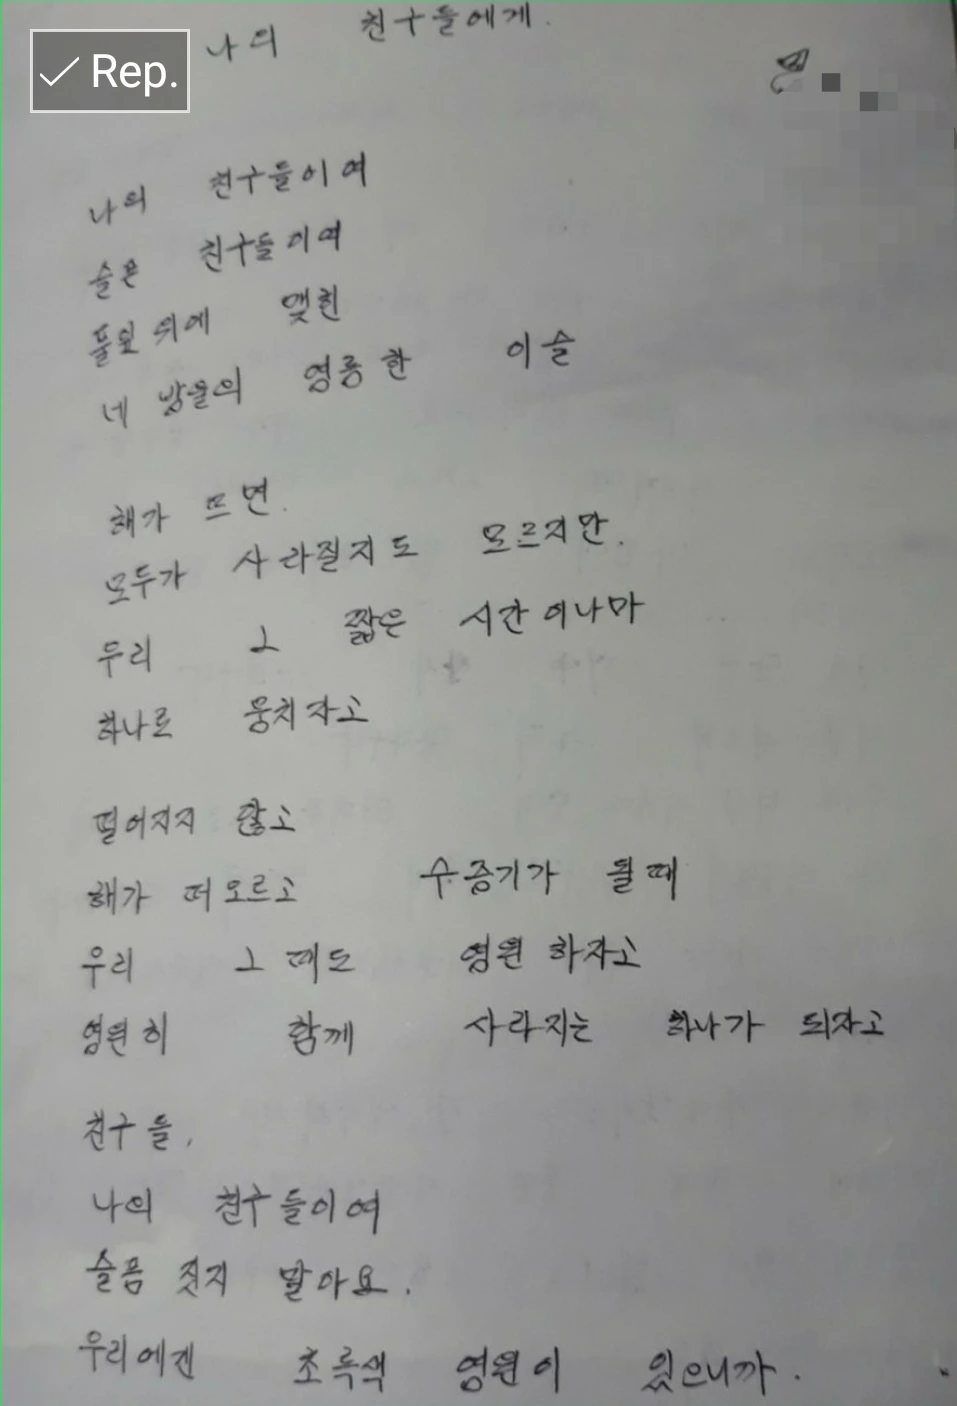 Rep.
나의 친구들에게.
나의 친구들이여
슬픈 친구들이여
풀잎 위에 맺힌
네 방울의 영롱한 이슬
해가 뜨면.
모두가 사라질지도 모르지만.
우리 그 짧은 시간이나마
하나로 뭉치자고
떨어지지 않고
해가 떠오르고 수증기가 될때
우리 그 때도 영원하자고
영원히 함께 사라지는 하나가 되자고
친구들,
나의 친구들이여
슬픔 짓지 말아요.
우리에겐 초록색 영원이 있으니까.